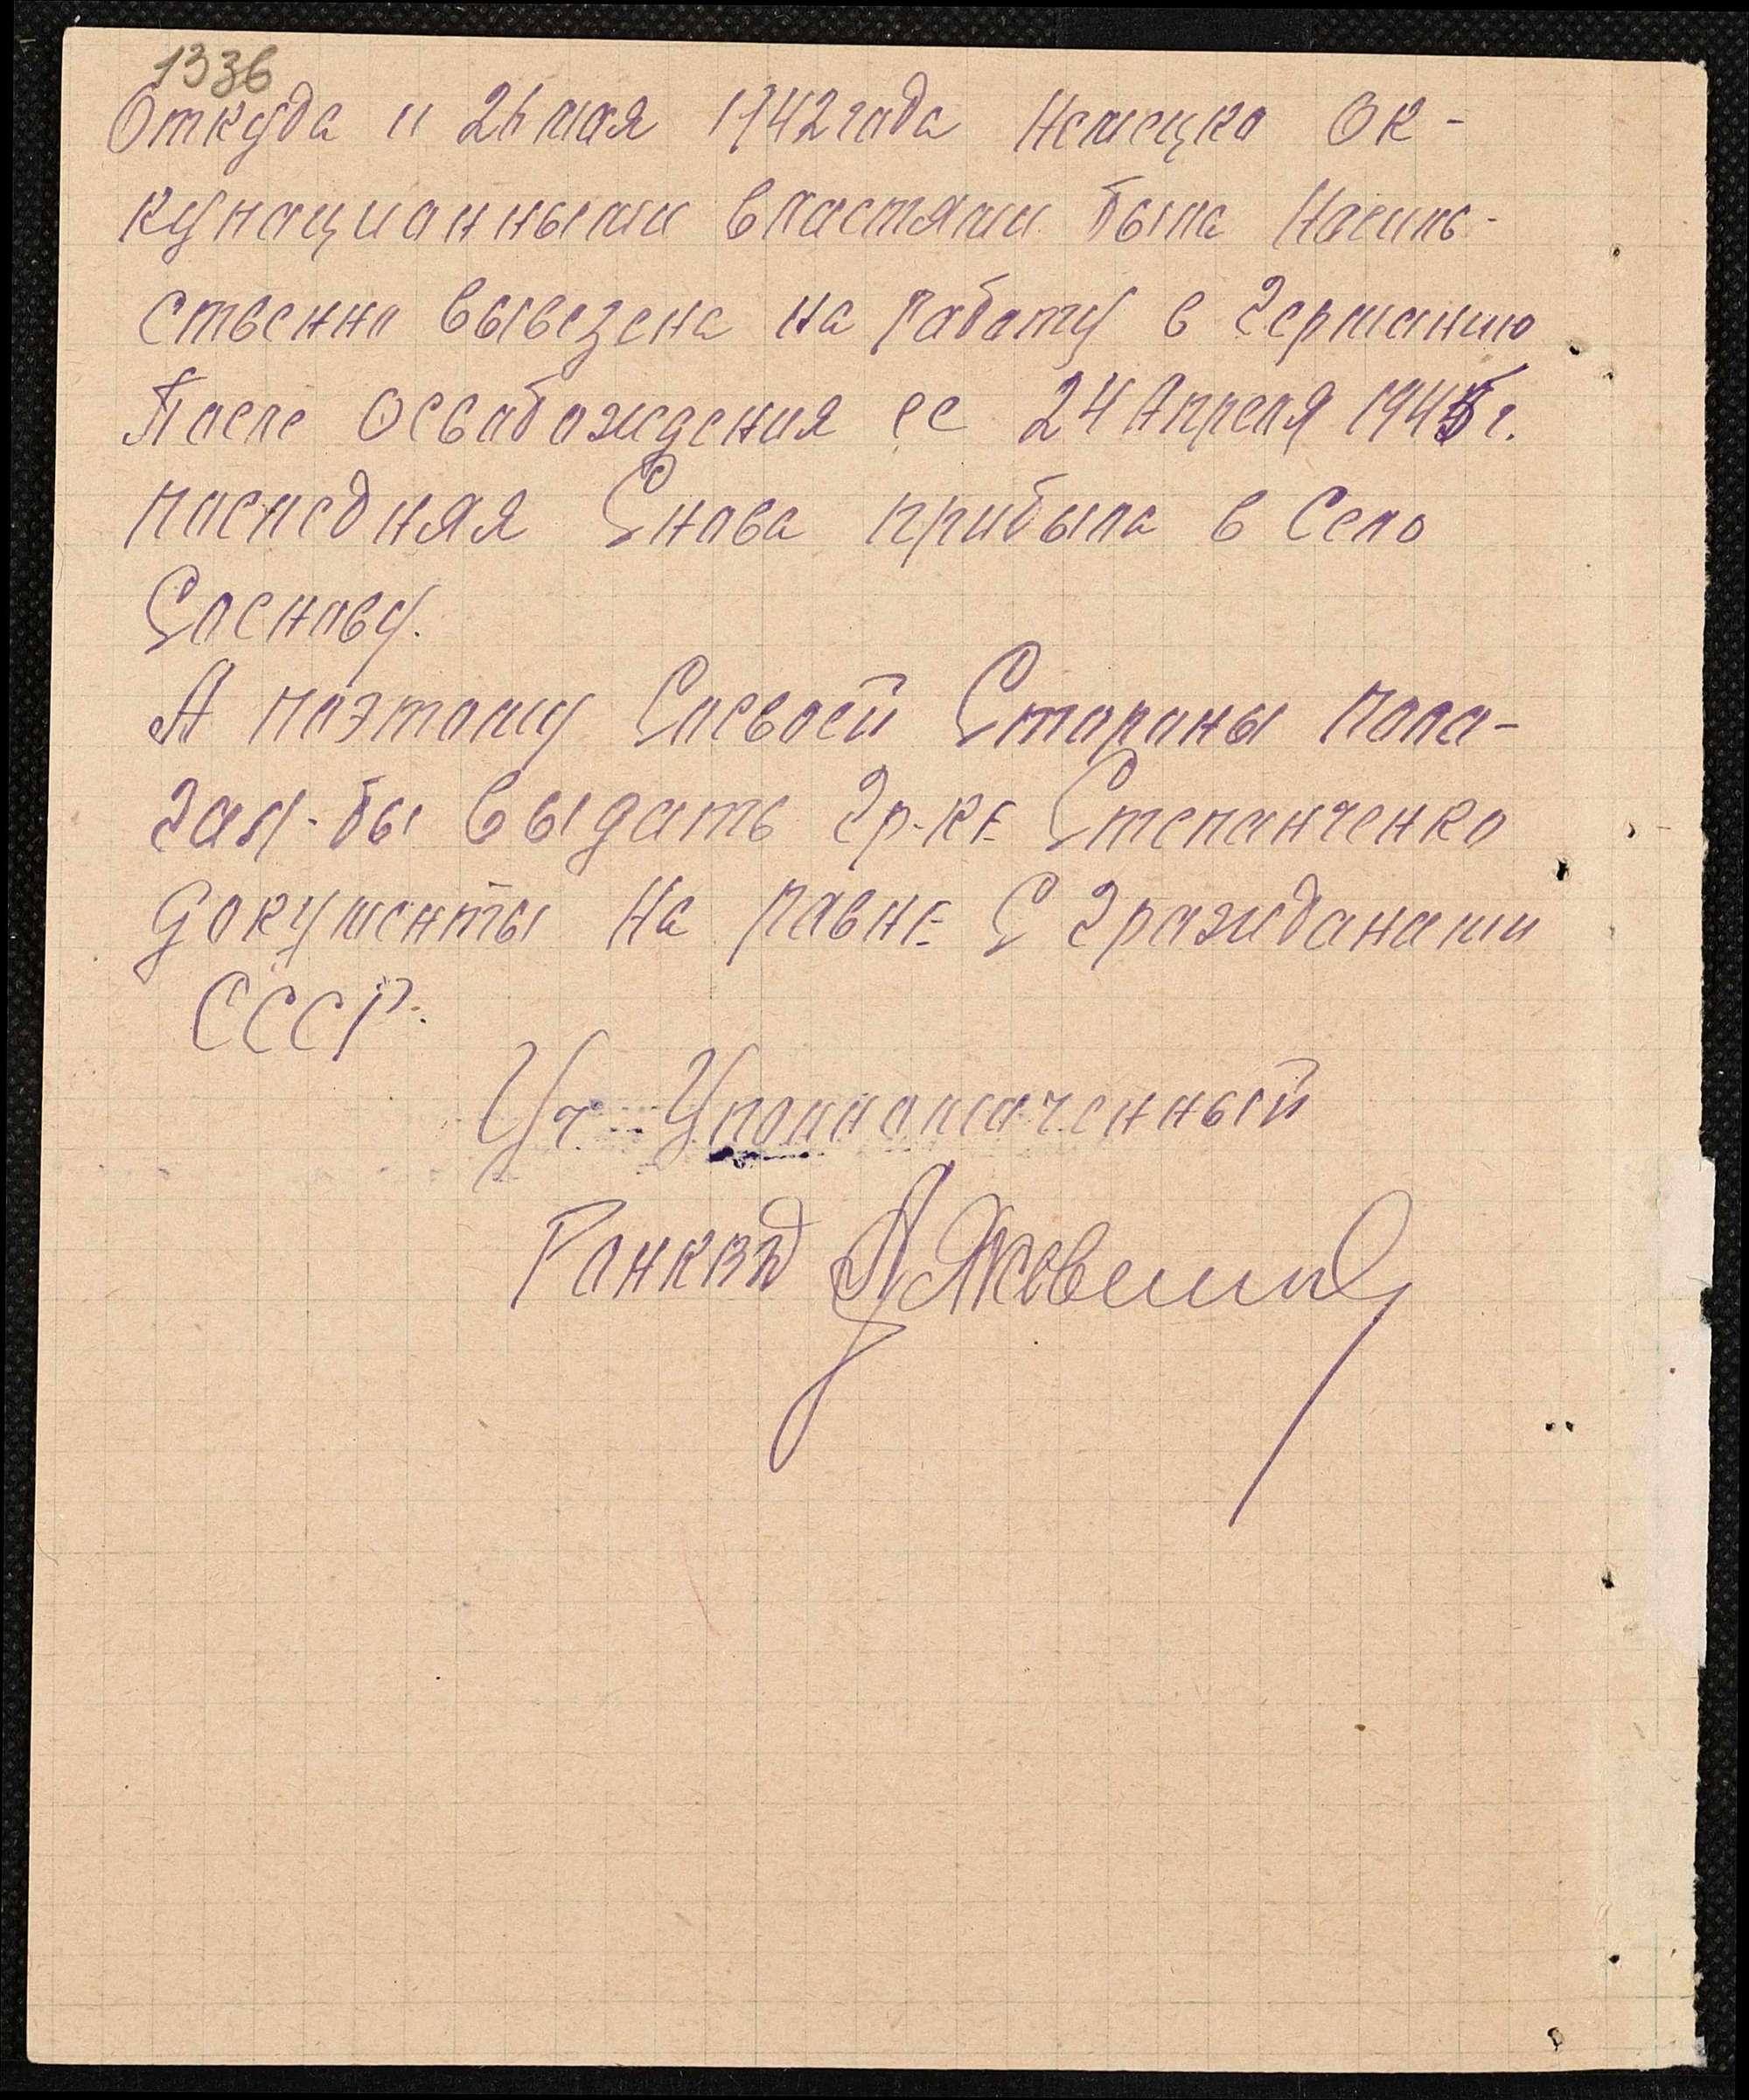 1336
Откуда и 26 мая 1942 года Немецко Ок-
купационными властями была Насиль-
ственно вывезена на работу в Германию
После Освобождения ее 24 Апреля 1945 г.
последняя Снова прибыла в Село
Соснову.
А поэтому Сосвоей Стороны пола-
гал-бы выдать гр-ке Степанченко
документы На равне С гражданами
СССР.
Уч Уполномоченный
РОНКВД